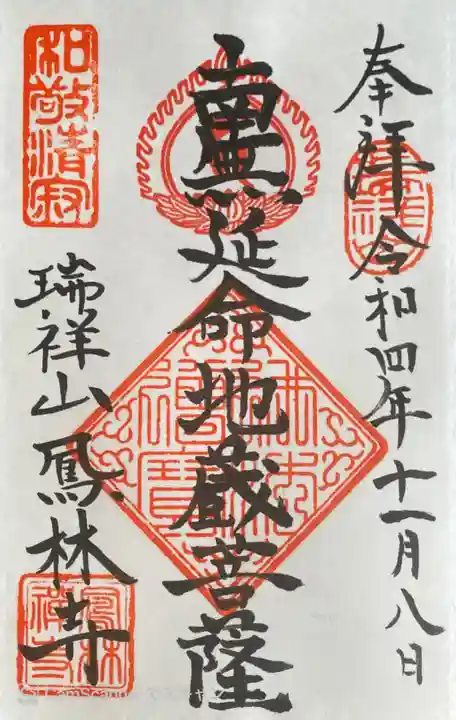 奉拝 令和四年十一月八日
南無延命地蔵菩薩
和敬清寂
瑞祥山鳳林寺